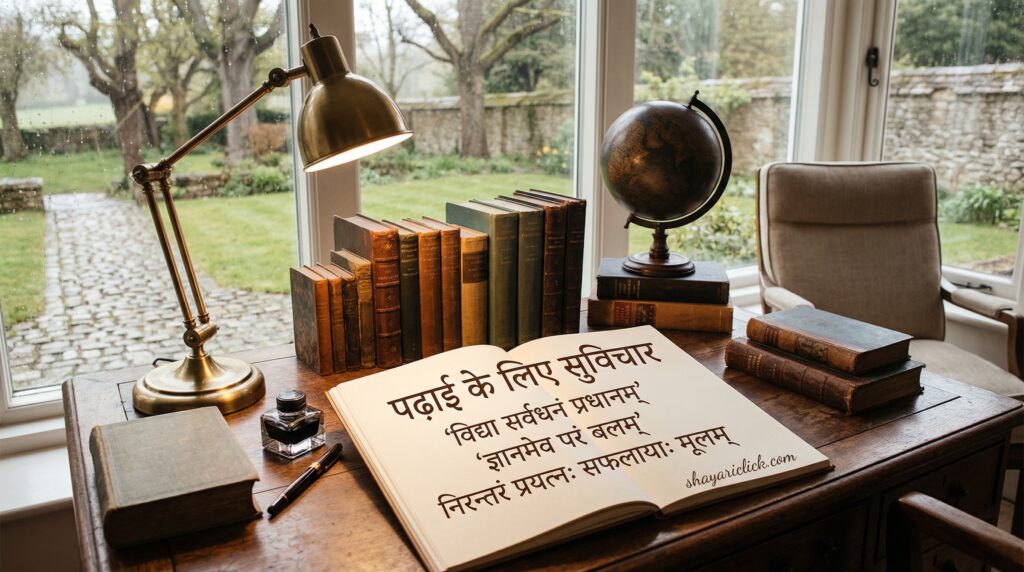 पढ़ाई के लिए सुविचार
‘विद्या सर्वधनं प्रधानम्’
‘ज्ञानमेव परं बलम्’
निरन्तरं प्रयत्नः सफलायाः मूलम्
shayariclick.com